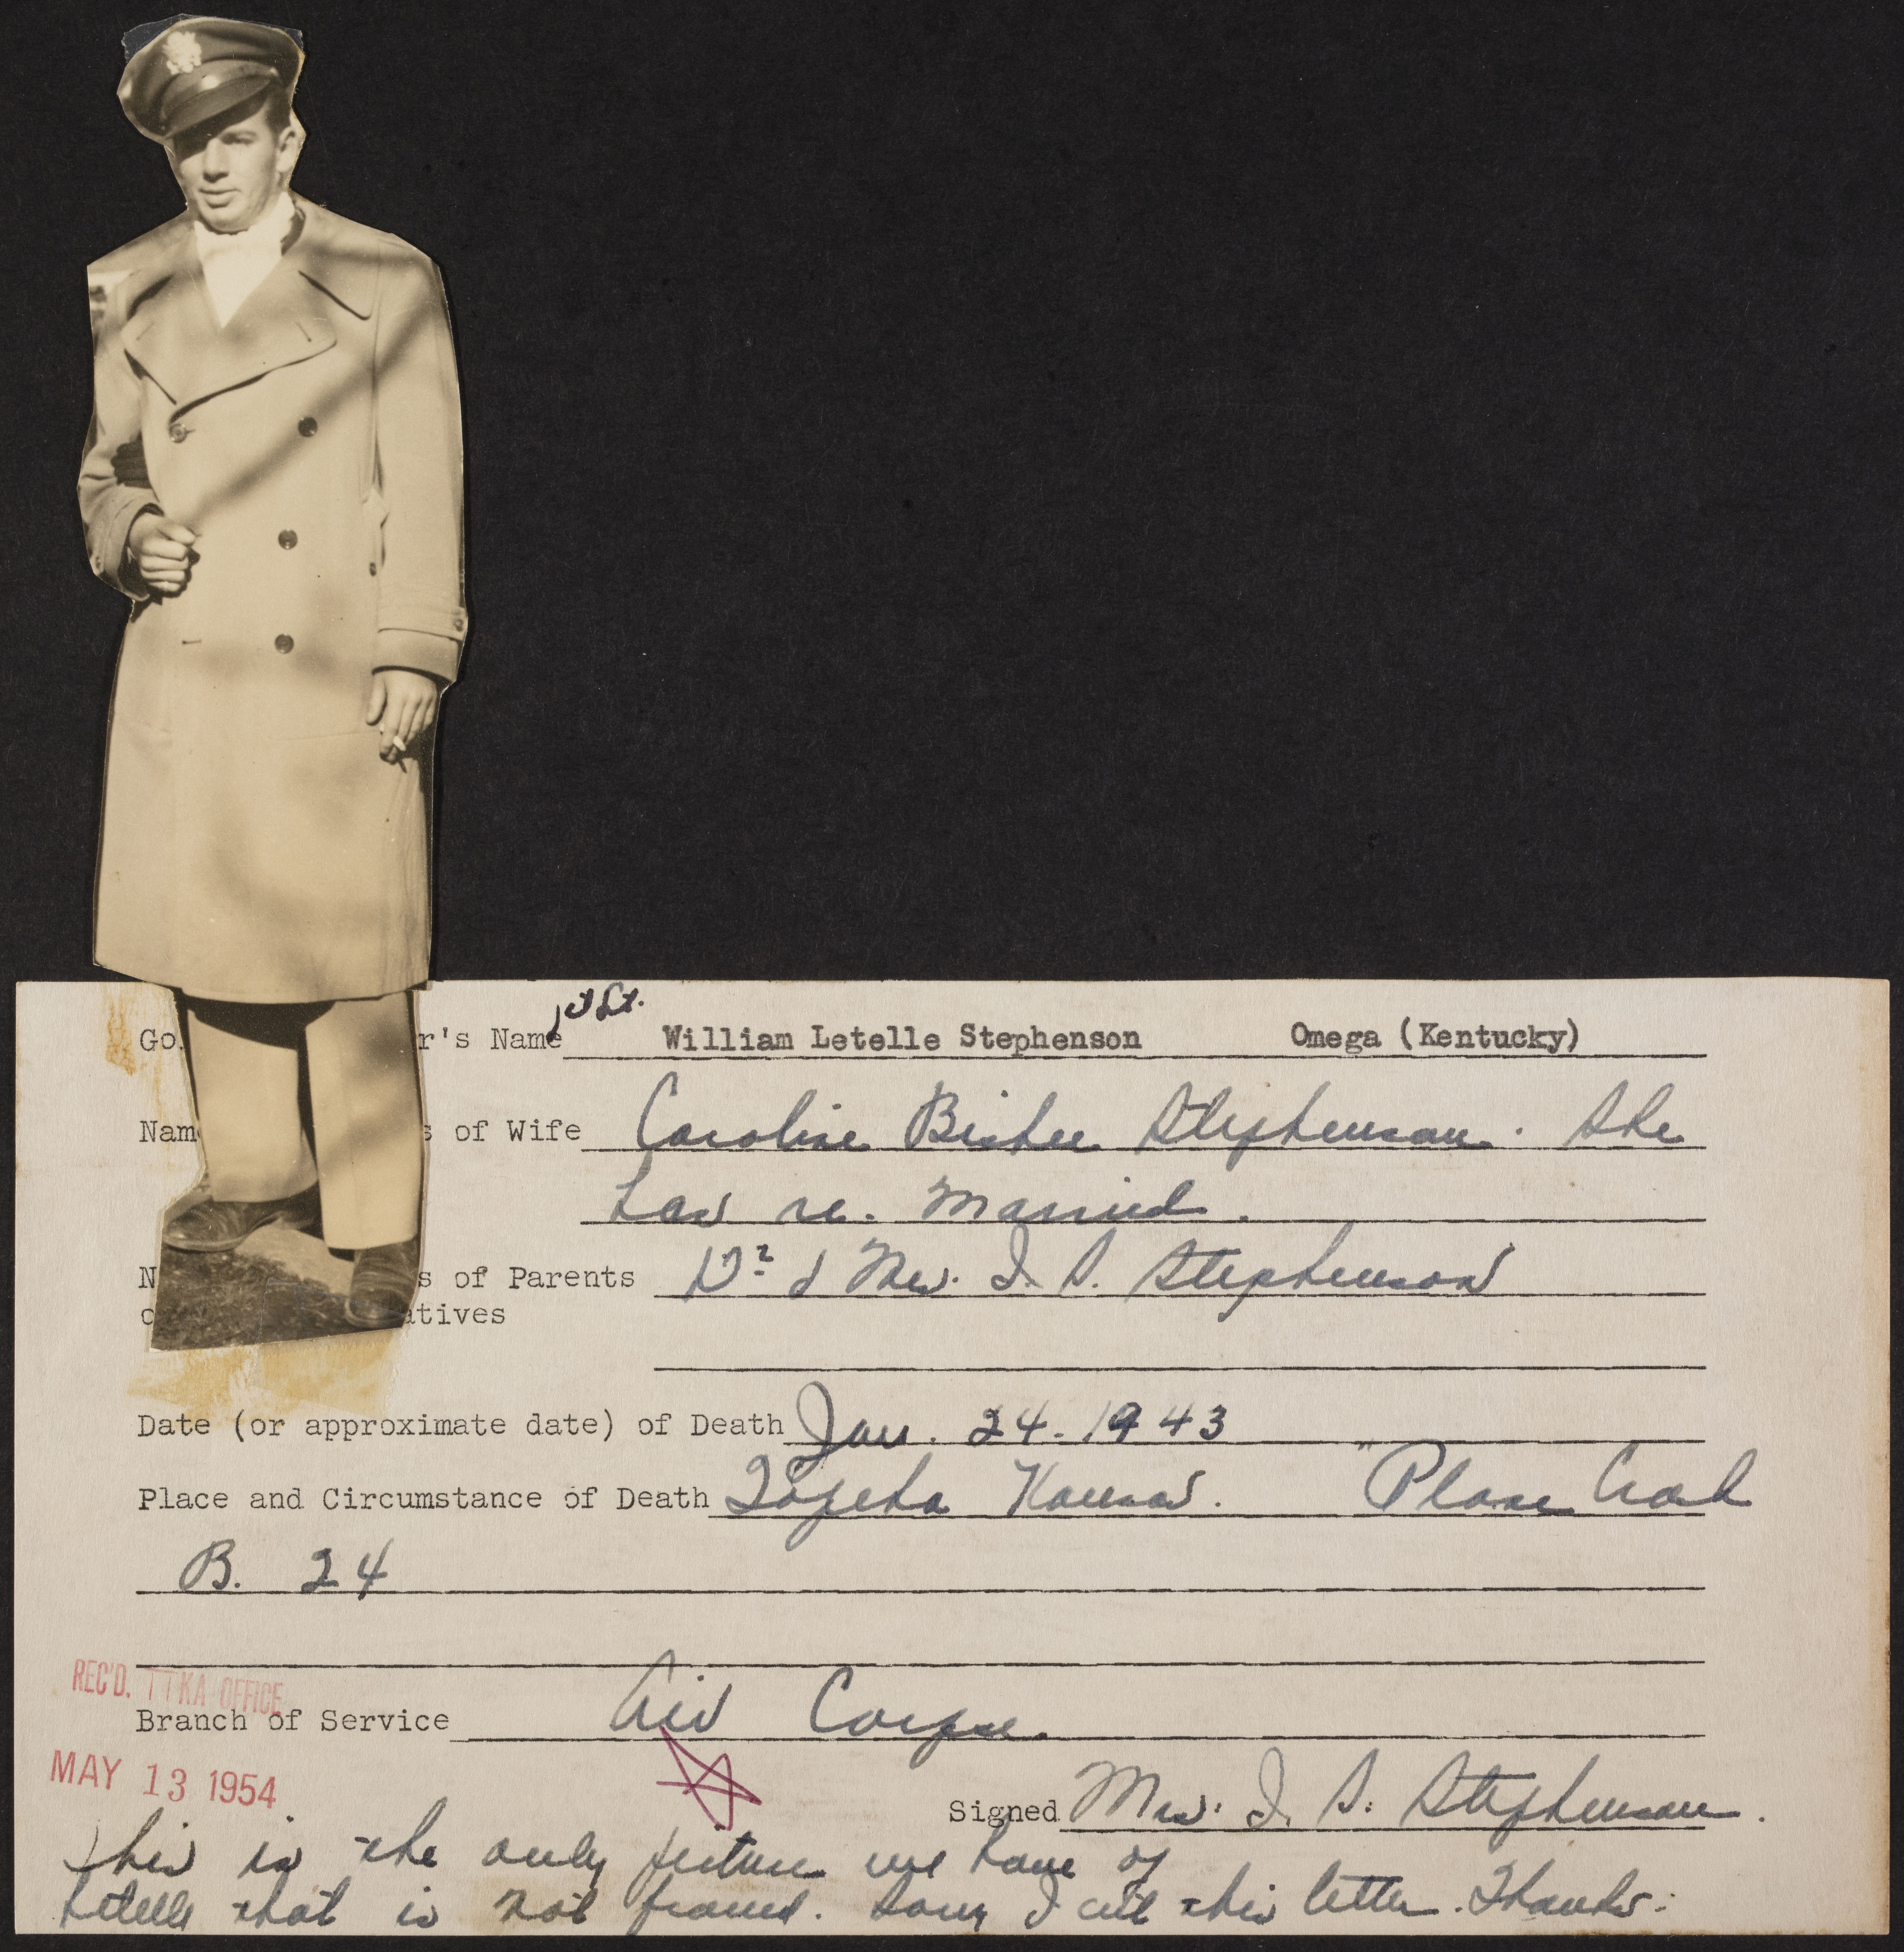 Go. r's Name 1st Lt. William Letelle Stephenson Omega (Kentucky)
Nam s of Wife Caroline Bisbee Stephenson. She
has re. married.
N s of Parents Dr. & Mrs. I. S. Stephenson
o atives
Date (or approximate date) of Death Jan. 24. 1943
Place and Circumstance of Death Topeka Kansas. Plane Crash
B. 24
REC'D. TTKA OFFICE
Branch of Service Air Corps.
MAY 13 1954
Signed Mrs. I. S. Stephenson.
This is the only picture we have of
Letelle that is not framed. Sorry I cut this letter. Thanks.